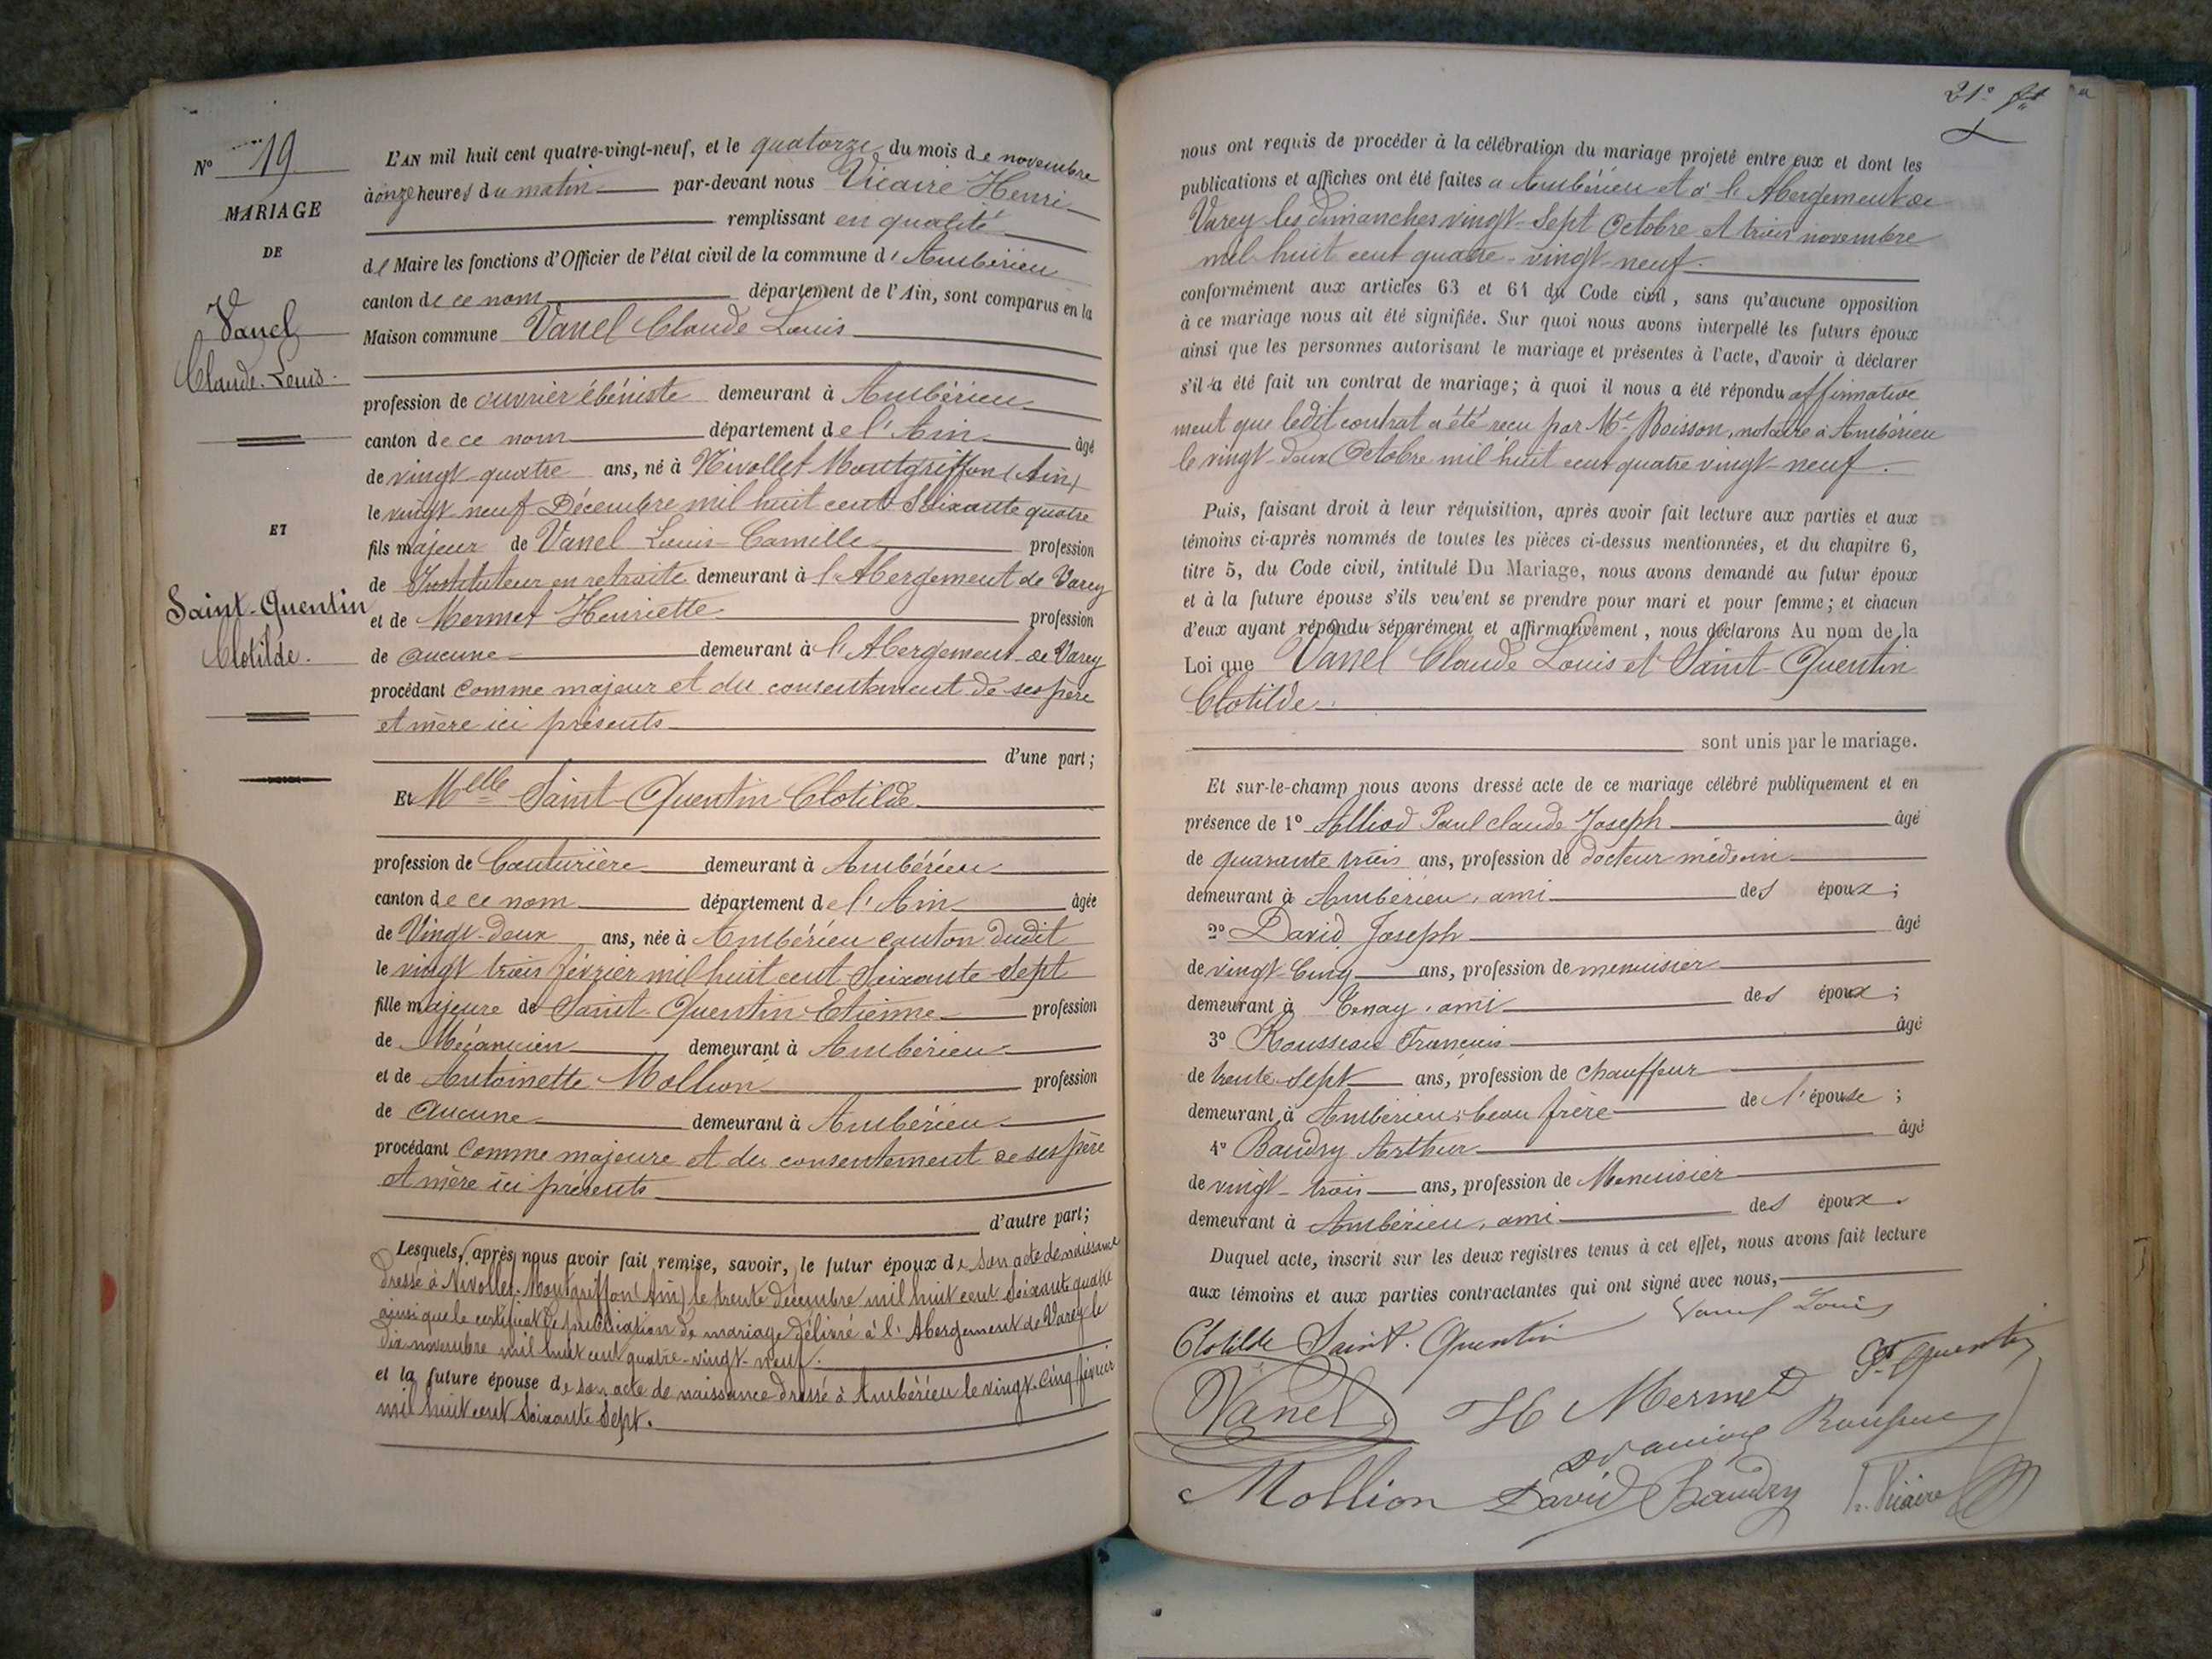 N° 19
MARIAGE
DE
Vanel
Claude Louis.
ET
Saint-Quentin
Clotilde.
L'AN mil huit cent quatre-vingt-neuf, et le quatorze du mois de novembre
à onze heures du matin par-devant nous Vicaire Henri
remplissant en qualité
de Maire les fonctions d'Officier de l'état civil de la commune d'Ambérieu
canton de ce nom département de l'Ain, sont comparus en la
Maison commune Vanel Claude Louis
profession de ouvrier ébéniste demeurant à Ambérieu
canton de ce nom département de l'Ain âgé
de vingt quatre ans, né à Nivollet Montgriffon (Ain)
le vingt neuf Décembre mil huit cent Soixante quatre
fils majeur de Vanel Louis Camille profession
de Instituteur en retraite demeurant à l'Abergement de Varey
et de Mermet Henriette profession
de aucune demeurant à l'Abergement de Varey
procédant comme majeur et du consentement de ses père
et mère ici présents
d'une part;
Et Melle Saint-Quentin Clotilde
profession de Couturière demeurant à Ambérieu
canton de ce nom département de l'Ain âgée
de Vingt-deux ans, née à Ambérieu canton dudit
le vingt trois février mil huit cent Soixante-Sept
fille majeure de Saint-Quentin Etienne profession
de Mécanicien demeurant à Ambérieu
et de Antoinette Mollion profession
de aucune demeurant à Ambérieu
procédant comme majeure et du consentement de ses père
et mère ici présents
d'autre part;
Lesquels, après nous avoir fait remise, savoir, le futur époux de son acte de naissance
dressé à Nivollet-Montgriffon (Ain) le trente décembre mil huit cent Soixante quatre
ainsi que le certificat de publication de mariage délivré à l'Abergement de Varey le
dix novembre mil huit cent quatre-vingt-neuf.
et la future épouse de son acte de naissance dressé à Ambérieu le vingt-cinq février
mil huit cent Soixante Sept.
21°
nous ont requis de procéder à la célébration du mariage projeté entre eux et dont les
publications et affiches ont été faites à Ambérieu et à l'Abergement de
Varey les dimanches vingt-Sept Octobre et trois novembre
mil huit cent quatre-vingt-neuf.
conformément aux articles 63 et 64 du Code civil, sans qu'aucune opposition
à ce mariage nous ait été signifiée. Sur quoi nous avons interpellé les futurs époux
ainsi que les personnes autorisant le mariage et présentes à l'acte, d'avoir à déclarer
s'il a été fait un contrat de mariage; à quoi il nous a été répondu affirmative
ment que ledit contrat a été reçu par Me Boisson, notaire à Ambérieu
le vingt-deux Octobre mil huit cent quatre vingt-neuf.
Puis, faisant droit à leur réquisition, après avoir fait lecture aux parties et aux
témoins ci-après nommés de toutes les pièces ci-dessus mentionnées, et du chapitre 6,
titre 5, du Code civil, intitulé Du Mariage, nous avons demandé au futur époux
et à la future épouse s'ils veulent se prendre pour mari et pour femme; et chacun
d'eux ayant répondu séparément et affirmativement, nous déclarons Au nom de la
Loi que Vanel Claude Louis et Saint-Quentin
Clotilde
sont unis par le mariage.
Et sur-le-champ nous avons dressé acte de ce mariage célébré publiquement et en
présence de 1° Alliod Paul Claude Joseph âgé
de quarante trois ans, profession de docteur médecin
demeurant à Ambérieu, ami des époux;
2° David Joseph âgé
de vingt-Cinq ans, profession de menuisier
demeurant à Tenay, ami des époux;
3° Rousseau François âgé
de trente-sept ans, profession de chauffeur
demeurant à Ambérieu, beau frère de l'épouse;
4° Baudry Arthur âgé
de vingt-trois ans, profession de Menuisier
demeurant à Ambérieu, ami des époux.
Duquel acte, inscrit sur les deux registres tenus à cet effet, nous avons fait lecture
aux témoins et aux parties contractantes qui ont signé avec nous,
Clotilde Saint-Quentin Vanel Louis
St Quentin
Vanel H Mermet
Mollion David Baudry H. Vicaire